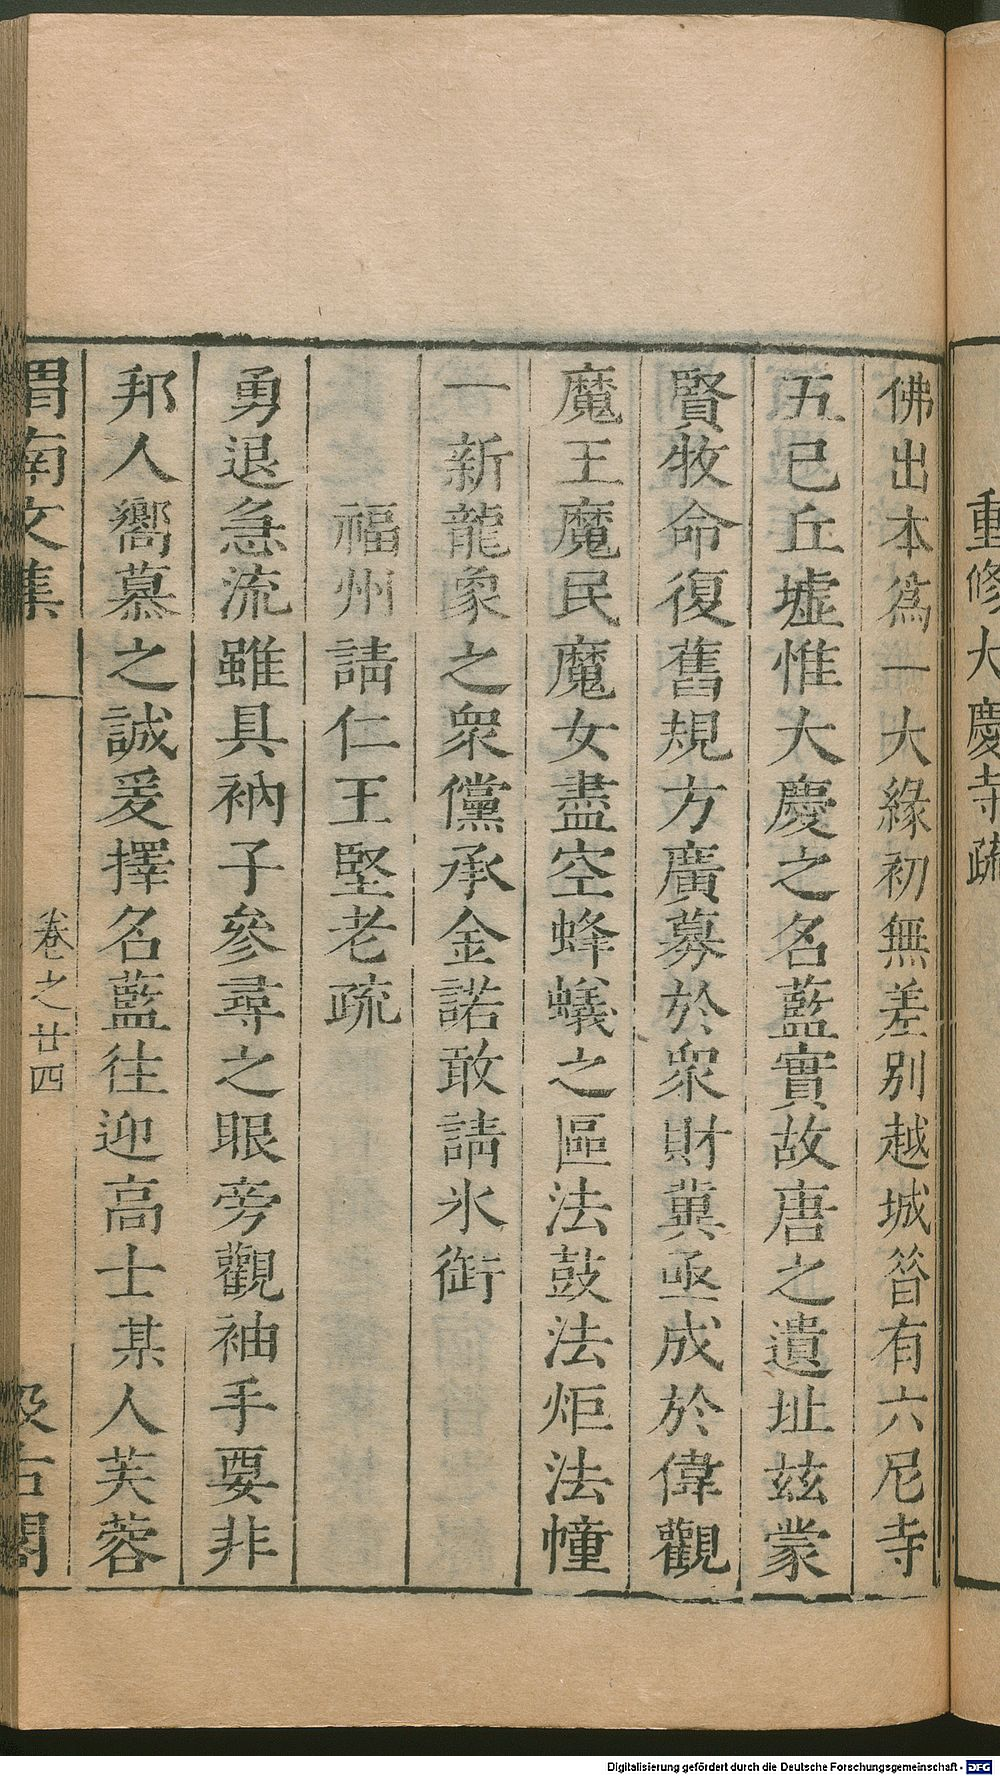 重修大慶寺疏
佛出本爲一大緣初無差別越城昝有六尼寺
五已丘墟惟大慶之名藍實故唐之遺址玆蒙
賢牧命復舊規方廣募於衆財冀亟成於偉觀
魔王魔民魔女盡空蜂蟻之區法鼓法炬法幢
一新龍象之衆儻承金諾敢請氷銜
福州請仁王堅老疏
勇退急流雖具衲子參尋之眼旁觀袖手要非
邦人嚮慕之誠爰擇名藍往迎高士某人芙蓉
渭南文集
卷之廿四
汲古閣
Digitalisierung gefördert durch die Deutsche Forschungsgemeinschaft - DFG